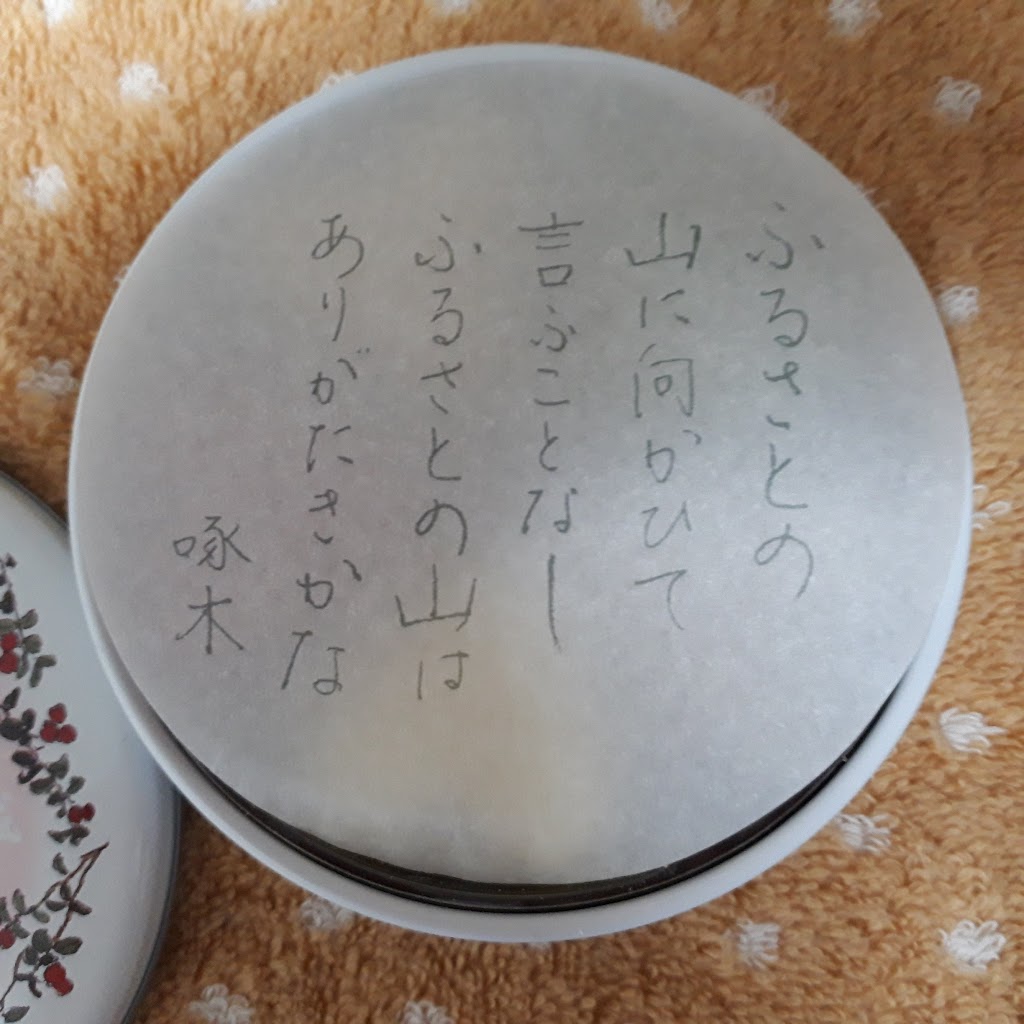 ふるさとの
山に向かひて
言ふことなし
ふるさとの山は
ありがたきかな
啄木